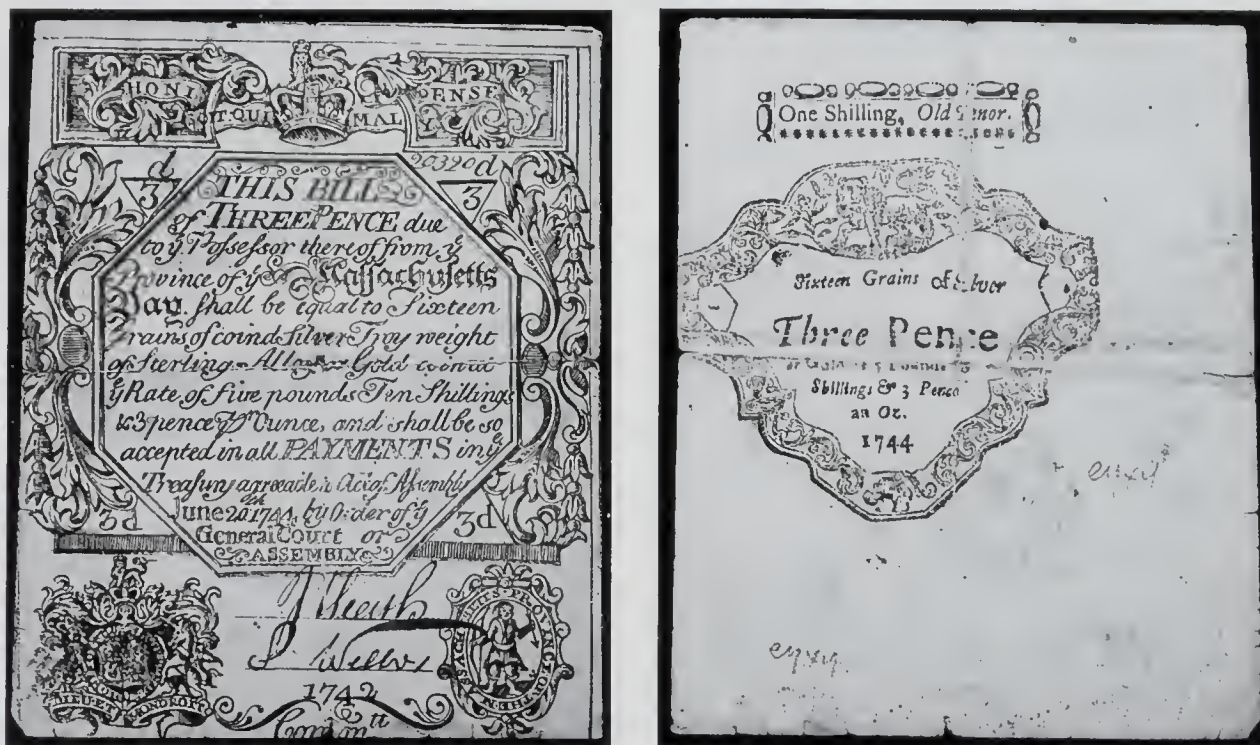 HONI PENSE
SOIT·QUI MAL
d 20390 d
3 THIS BILL 3
of THREE PENCE due
to yͤ Possessor thereof from yͤ
Province of yͤ Massachusetts
Bay. shall be equal to Sixteen
Grains of coind Silver Troy weight
of Sterling Alloy or Gold coin at
yͤ Rate of five pounds Ten Shillings
&3 pence pͬ Ounce, and shall be so
accepted in all PAYMENTS in yͤ
Treasury agreeable to Act of Assembly
3d June 20 1744, by Order of yͤ 3d
General Court or
ASSEMBLY
MASSACHUSETTS·PROVINCE
DIEU·ET
1742
Com̅tt
One Shilling, Old Tenor.
Sixteen Grains of Silver
Three Pence
or Gold
Shillings & 3 Pence
an Oz.
1744